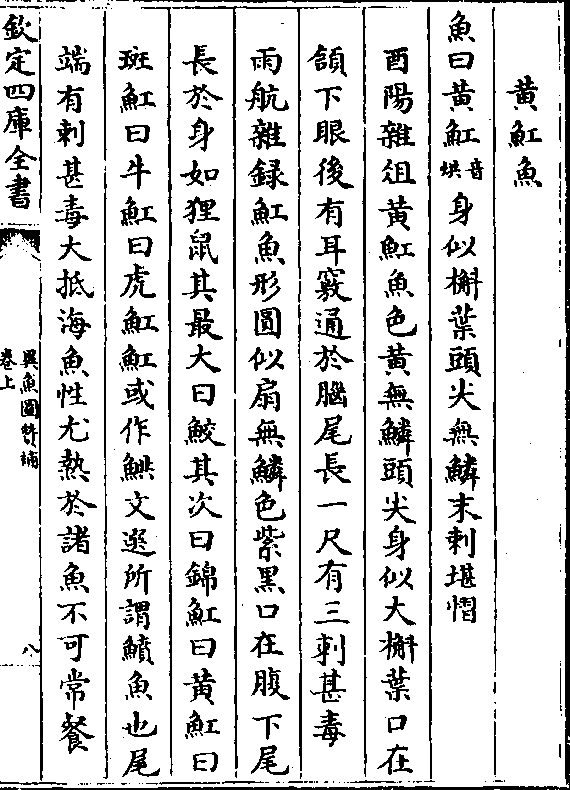 黃魟魚
魚曰黃魟音烘身似槲葉頭尖無鱗末刺堪慴
酉陽雜俎黃魟魚色黃無鱗頭尖身似大槲葉口在
頷下眼後有耳竅通於腦尾長一尺有三刺甚毒
雨航雜録魟魚形圓似扇無鱗色紫黑口在腹下尾
長於身如狸鼠其最大曰鮫其次曰錦魟曰黃魟曰
斑魟曰牛魟曰虎魟魟或作䱋文選所謂鱝魚也尾
端有刺甚毒大抵海魚性尤熱於諸魚不可常餐
欽定四庫全書
異魚圖贊補
卷上
八